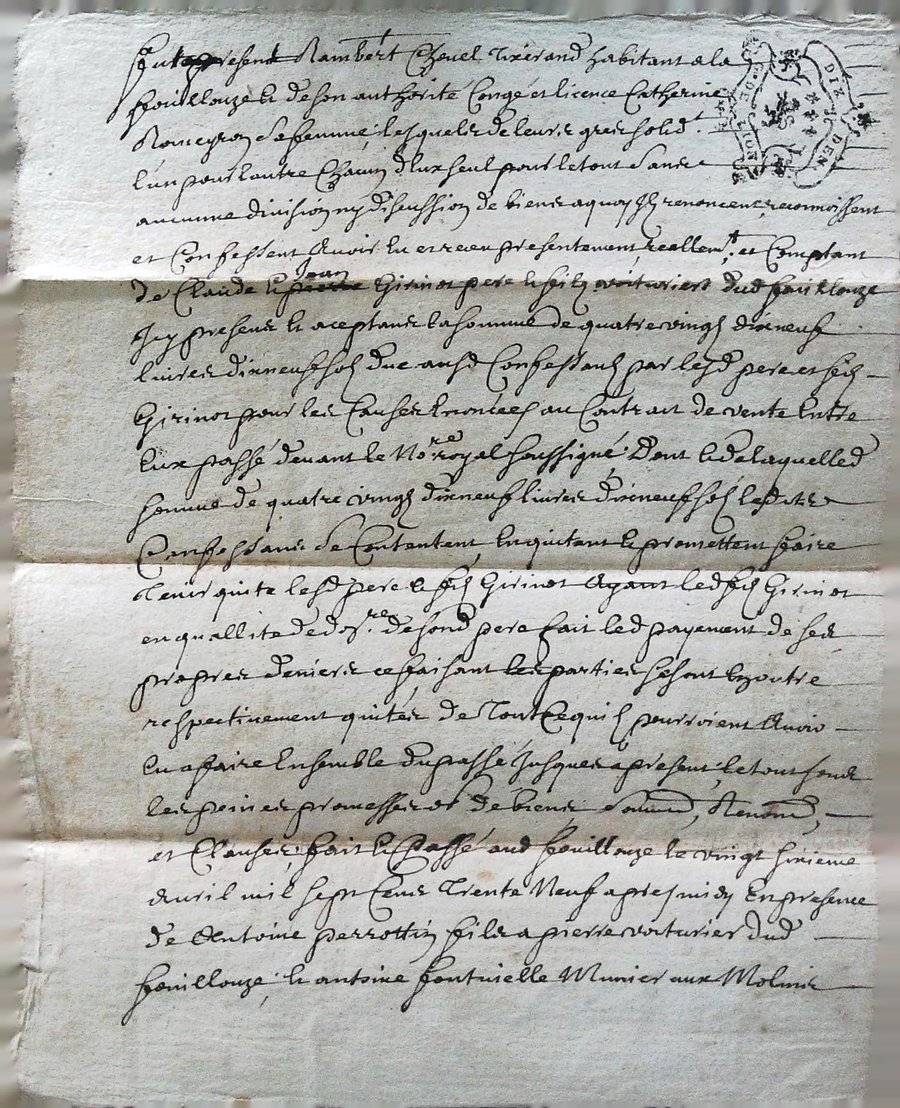 fut present Rambert Chovel tixerand habitant a la
fouillouze & de son authorité Congé et licence Catherine
Romeyron sa femme, lesquels de leurs grés solid.t
l'un pour l'autre Chacun d'eux seul pour le tout sans
aucunne division ny discussion de biens a quoy Ils renoncent, reconnoissent
et Confessent Avoir eu et receu presentement, reellem.t et Comptant
de Claude & Jean Girinot pere & fils voituriers dud fouillouze
Icy presens & aceptans la somme de quatre vingt dixneuf
livres dixneuf sols due ausd Confessans par lesd pere et fils
Girinot pour les Causes Enoncées au Contrat de vente Entre
Eux passé devant le No.re royal soussigné Dont & de laquelle d
somme de quatre vingt dixneuf livres dixneuf sols lesdits
Confessans se Contentent, En quitant & promettent faire
tenir quite lesd pere & fils Girinot Ayant led fils Girinot
en quallité de de son d pere fait led payement de ses
propres deniers ce faisant les parties se sont En outre
respectivement quitées de Tout Ce qu'ils pourroient Avoir
Eu a faire Ensemble du passé Jusques a present, le tout sous
les peines promesses de biens Soumis, Renons,
et Clauses, fait & Passé aud fouillouze le vingt sixieme
Avril mil sept Cens Trente Neuf apres midy En presence
de Antoine perrottin fils a pierre voiturier dud
fouillouze, & antoine fontvielle Munier aux Molins
G. DE LION
DIX DEN.